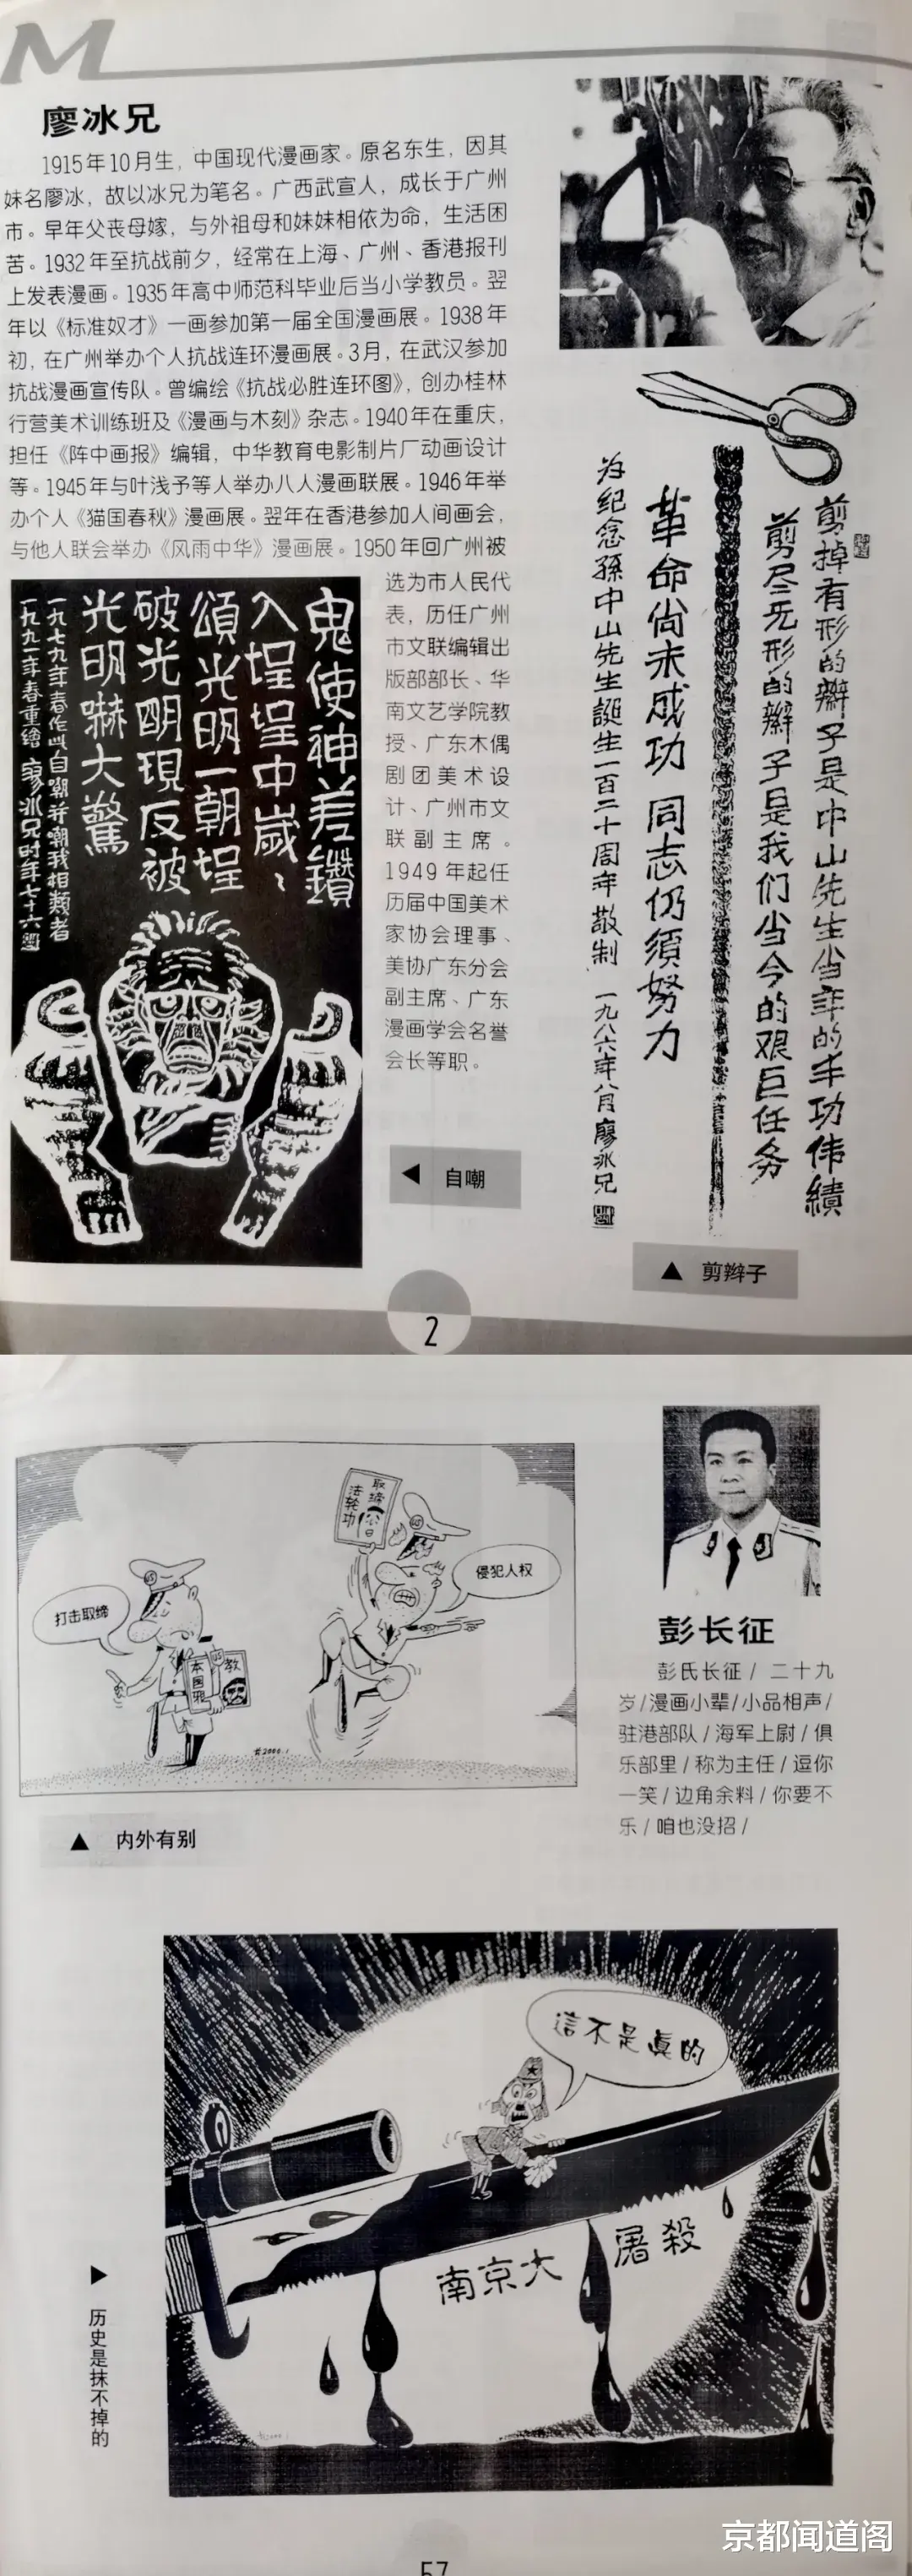 M
廖冰兄
1915年10月生，中国现代漫画家。原名东生，因其
妹名廖冰，故以冰兄为笔名。广西武宣人，成长于广州
市。早年父丧母嫁，与外祖母和妹妹相依为命，生活困
苦。1932年至抗战前夕，经常在上海、广州、香港报刊
上发表漫画。1935年高中师范科毕业后当小学教员。翌
年以《标准奴才》一画参加第一届全国漫画展。1938年
初，在广州举办个人抗战连环漫画展。3月，在武汉参加
抗战漫画宣传队。曾编绘《抗战必胜连环图》，创办桂林
行营美术训练班及《漫画与木刻》杂志。1940年在重庆，
担任《阵中画报》编辑，中华教育电影制片厂动画设计
等。1945年与叶浅予等人举办八人漫画联展。1946年举
办个人《猫国春秋》漫画展。翌年在香港参加人间画会，
与他人联会举办《风雨中华》漫画展。1950年回广州被
选为市人民代
表，历任广州
市文联编辑出
版部部长、华
南文艺学院教
授、广东木偶
剧团美术设
计、广州市文
联副主席。
1949年起任
历届中国美术
家协会理事、
美协广东分会
副主席、广东
漫画学会名誉
会长等职。
鬼使神差鑽
入埕埕中歲歲
頌光明一朝埕
破光明現反被
光明嚇大驚
一九七九年春作此自嘲并嘲我相類者
一九九一年春重繪 廖冰兄时年七十六
◀ 自嘲
剪掉有形的辮子是中山先生当年的丰功伟績
剪尽无形的辮子是我们当今的艰巨任务
革命尚未成功 同志仍須努力
为纪念孫中山先生誕生一百二十周年敬制 一九八六年八月廖冰兄
▲ 剪辫子
2
打击取缔
本国邪
教
取缔
法轮功
侵犯人权
2000.1
▲ 内外有别
彭长征
彭氏长征/ 二十九
岁/漫画小辈/小品相声/
驻港部队/海军上尉/俱
乐部里/称为主任/逗你
一笑/边角余料/你要不
乐/咱也没招/
這不是真的
南京大屠殺
▶ 历史是抹不掉的
57
京都闻道阁